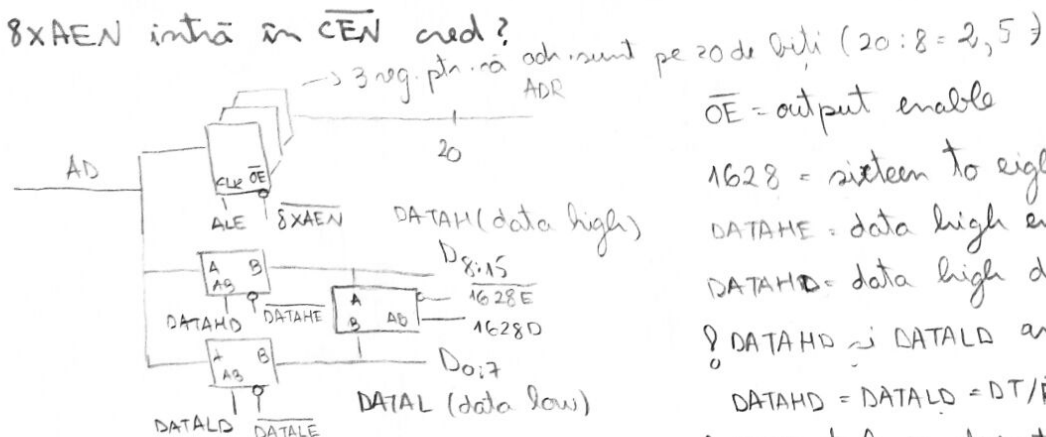 8xAEN intră în CEN cred?
→ 3 reg. ptr. că adr. sunt pe 20 de biți (20:8=2,5
ADR
20
AD
CLK OE
ALE 8XAEN
DATAH (data high)
A B
AB
DATAHD DATAHE
D8:15
1628E
1628D
A
B AB
A B
AB
DATALD DATALE
D0:7
DATAL (data low)
OE = output enable
1628 = sixteen to
DATAHE = data high
DATAHD = data high
! DATAHD și DATALD
DATAHD = DATALD = DT/